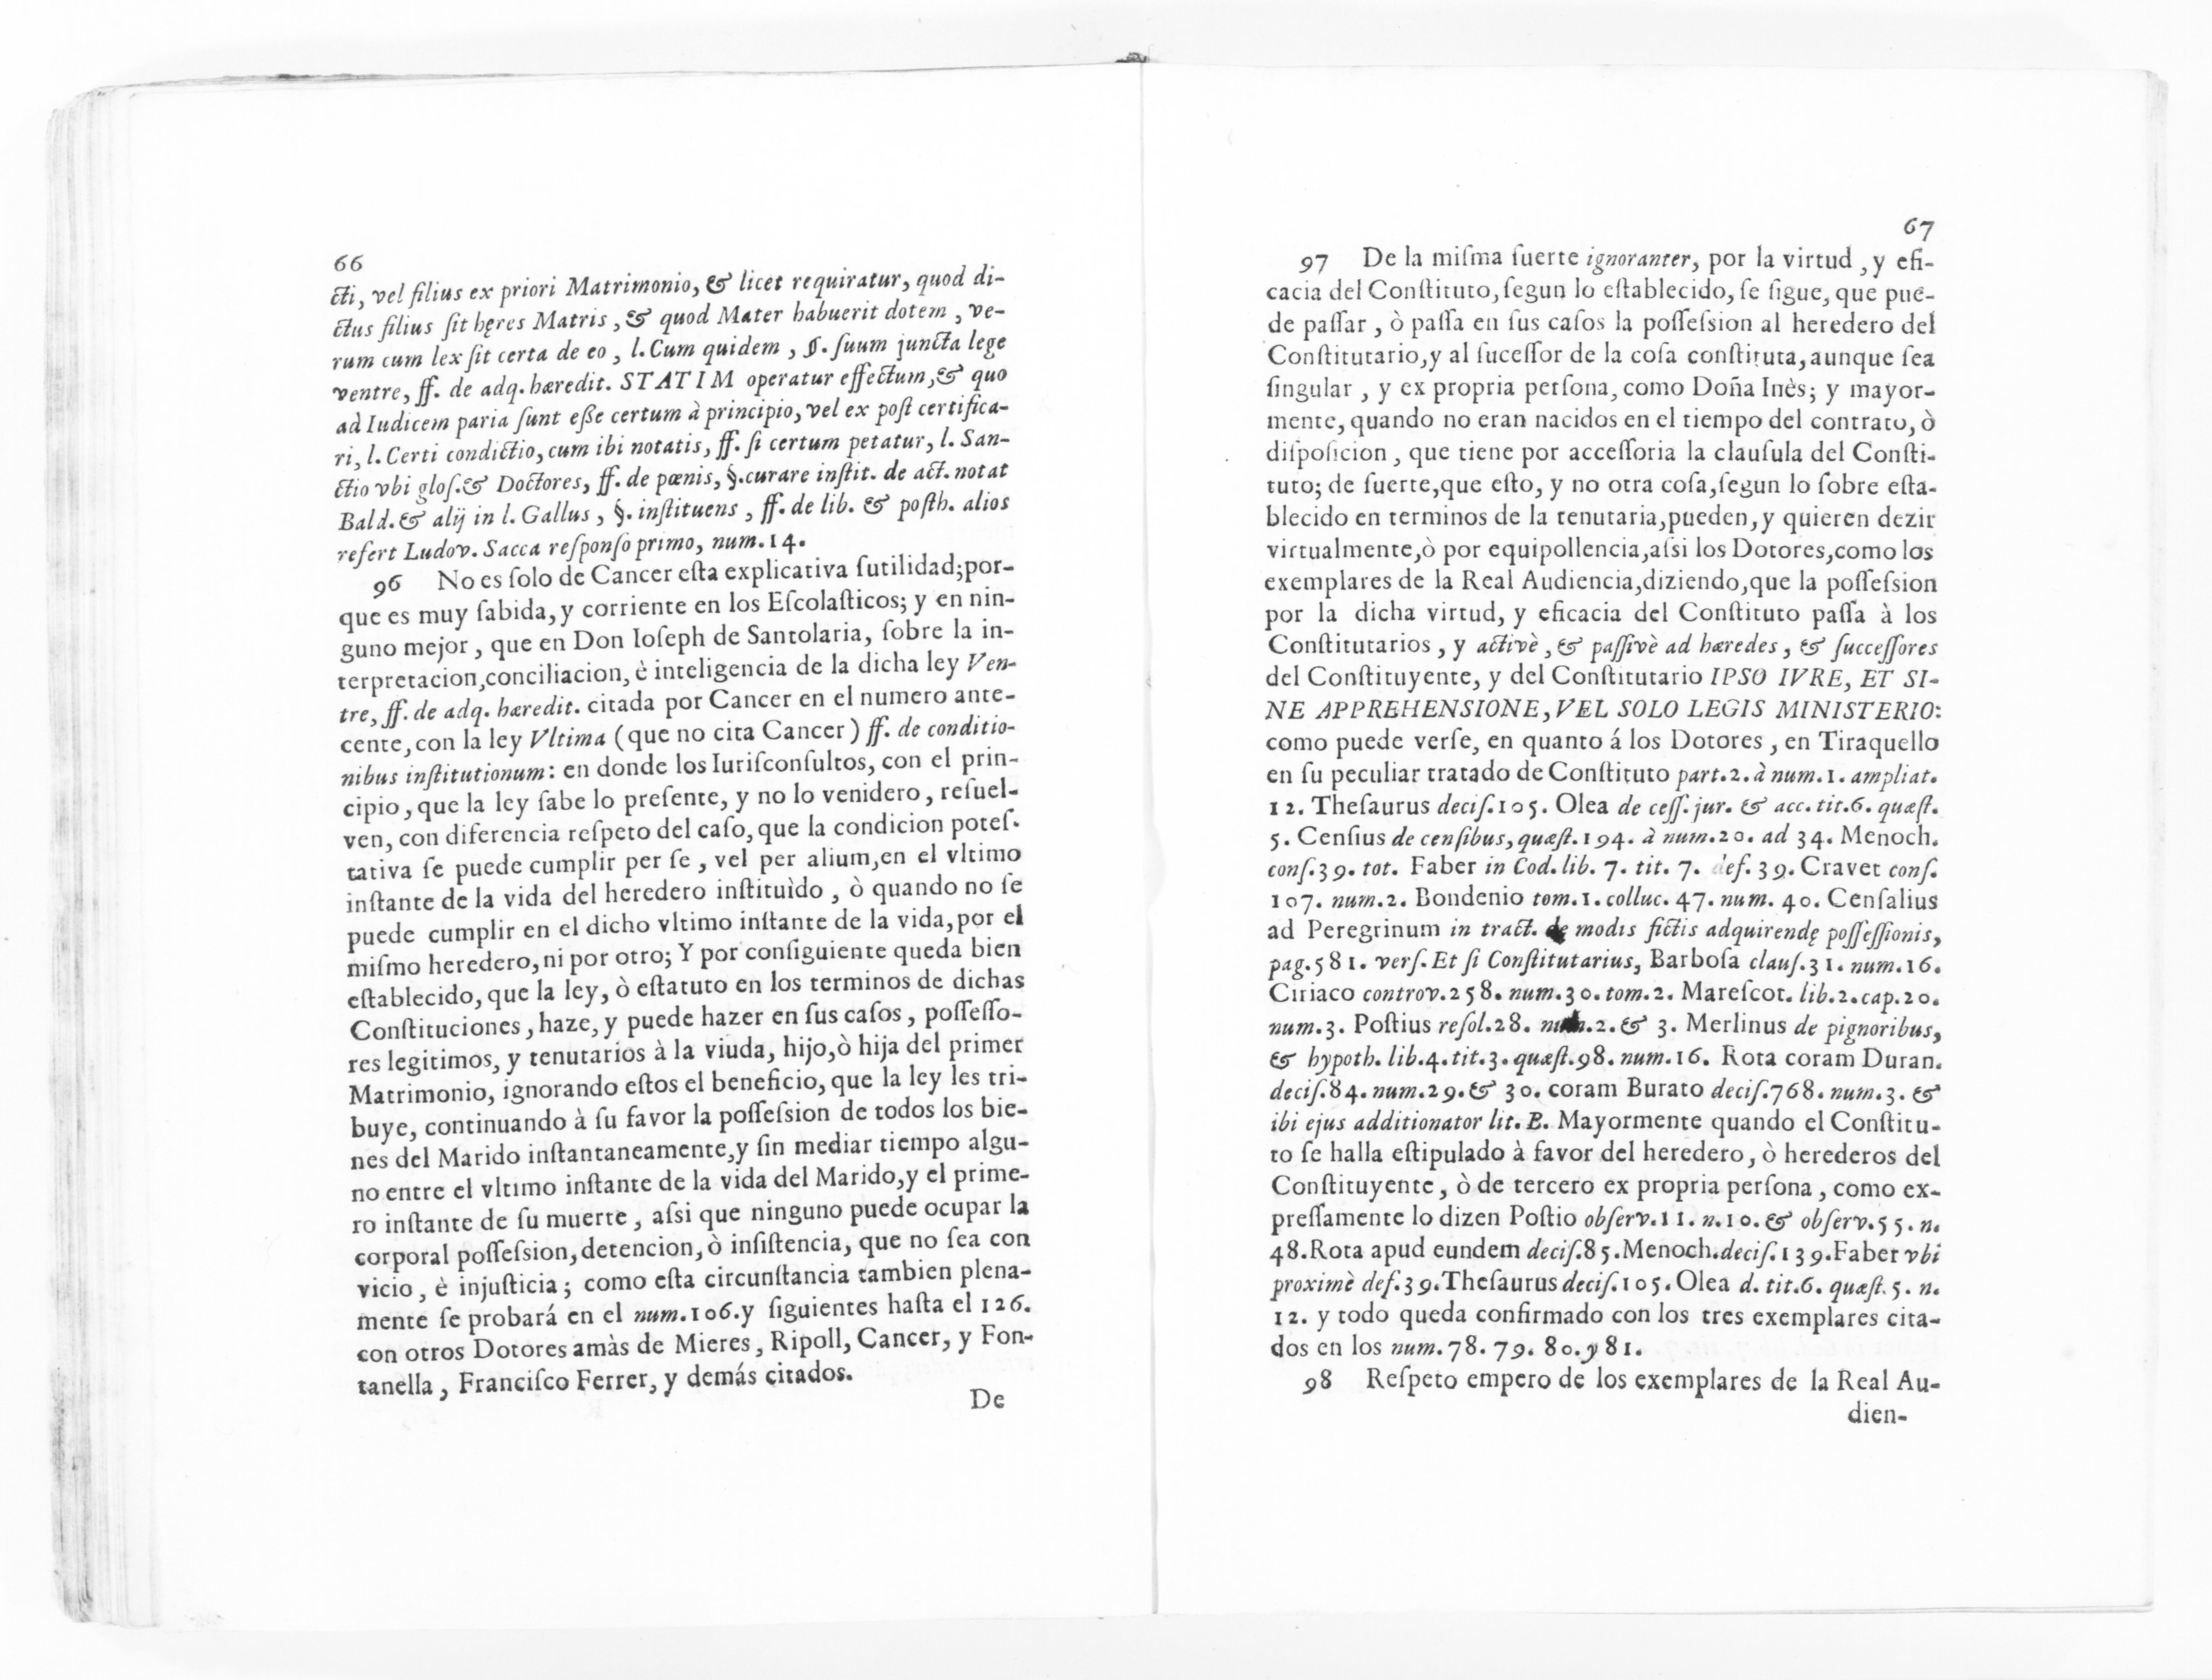 66
cti, vel filius ex priori Matrimonio, & licet requiratur, quod di-
ctus filius ſit hęres Matris, & quod Mater habuerit dotem, ve-
rum cum lex ſit certa de eo, l. Cum quidem, §. ſuum juncta lege
ventre, ff. de adq. hæredit. STATIM operatur effectum, & quo
ad Iudicem paria ſunt eße certum à principio, vel ex poſt certifica-
ri, l. Certi condictio, cum ibi notatis, ff. ſi certum petatur, l. San-
ctio vbi gloſ. & Doctores, ff. de pœnis, §. curare inſtit. de act. notat
Bald. & alij in l. Gallus, §. inſtituens, ff. de lib. & poſth. alios
refert Ludov. Sacca reſponſo primo, num. 14.
96 No es ſolo de Cancer eſta explicativa ſutilidad; por-
que es muy ſabida, y corriente en los Eſcolaſticos; y en nin-
guno mejor, que en Don Ioſeph de Santolaria, ſobre la in-
terpretacion, conciliacion, è inteligencia de la dicha ley Ven-
tre, ff. de adq. hæredit. citada por Cancer en el numero ante-
cente, con la ley Vltima (que no cita Cancer) ff. de conditio-
nibus inſtitutionum: en donde los Iuriſconſultos, con el prin-
cipio, que la ley ſabe lo preſente, y no lo venidero, reſuel-
ven, con diferencia reſpeto del caſo, que la condicion poteſ-
tativa ſe puede cumplir per ſe, vel per alium, en el vltimo
inſtante de la vida del heredero inſtituìdo, ò quando no ſe
puede cumplir en el dicho vltimo inſtante de la vida, por el
miſmo heredero, ni por otro; Y por conſiguiente queda bien
eſtablecido, que la ley, ò eſtatuto en los terminos de dichas
Conſtituciones, haze, y puede hazer en ſus caſos, poſſeſſo-
res legitimos, y tenutarios à la viuda, hijo, ò hija del primer
Matrimonio, ignorando eſtos el beneficio, que la ley les tri-
buye, continuando à ſu favor la poſſeſsion de todos los bie-
nes del Marido inſtantaneamente, y ſin mediar tiempo algu-
no entre el vltimo inſtante de la vida del Marido, y el prime-
ro inſtante de ſu muerte, aſsi que ninguno puede ocupar la
corporal poſſeſsion, detencion, ò inſiſtencia, que no ſea con
vicio, è injuſticia; como eſta circunſtancia tambien plena-
mente ſe probará en el num. 106. y ſiguientes haſta el 126.
con otros Dotores amàs de Mieres, Ripoll, Cancer, y Fon-
tanella, Franciſco Ferrer, y demás citados.
De
67
97 De la miſma ſuerte ignoranter, por la virtud, y efi-
cacia del Conſtituto, ſegun lo eſtablecido, ſe ſigue, que pue-
de paſſar, ò paſſa en ſus caſos la poſſeſsion al heredero del
Conſtitutario, y al ſuceſſor de la coſa conſtituta, aunque ſea
ſingular, y ex propria perſona, como Doña Inès; y mayor-
mente, quando no eran nacidos en el tiempo del contrato, ò
diſpoſicion, que tiene por acceſſoria la clauſula del Conſti-
tuto; de ſuerte, que eſto, y no otra coſa, ſegun lo ſobre eſta-
blecido en terminos de la tenutaria, pueden, y quieren dezir
virtualmente, ò por equipollencia, aſsi los Dotores, como los
exemplares de la Real Audiencia, diziendo, que la poſſeſsion
por la dicha virtud, y eficacia del Conſtituto paſſa à los
Conſtitutarios, y activè, & paſſivè ad hæredes, & ſucceſſores
del Conſtituyente, y del Conſtitutario IPSO IVRE, ET SI-
NE APPREHENSIONE, VEL SOLO LEGIS MINISTERIO:
como puede verſe, en quanto á los Dotores, en Tiraquello
en ſu peculiar tratado de Conſtituto part. 2. à num. 1. ampliat.
12. Theſaurus deciſ. 105. Olea de ceſſ. jur. & acc. tit. 6. quæſt.
5. Cenſius de cenſibus, quæſt. 194. à num. 20. ad 34. Menoch.
conſ. 39. tot. Faber in Cod. lib. 7. tit. 7. def. 39. Cravet conſ.
107. num. 2. Bondenio tom. 1. colluc. 47. num. 40. Cenſalius
ad Peregrinum in tract. de modis fictis adquirendę poſſeſſionis,
pag. 581. verſ. Et ſi Conſtitutarius, Barboſa clauſ. 31. num. 16.
Ciriaco controv. 258. num. 30. tom. 2. Mareſcot. lib. 2. cap. 20.
num. 3. Poſtius reſol. 28. num. 2. & 3. Merlinus de pignoribus,
& hypoth. lib. 4. tit. 3. quæſt. 98. num. 16. Rota coram Duran.
deciſ. 84. num. 29. & 30. coram Burato deciſ. 768. num. 3. &
ibi ejus additionator lit. B. Mayormente quando el Conſtitu-
to ſe halla eſtipulado à favor del heredero, ò herederos del
Conſtituyente, ò de tercero ex propria perſona, como ex-
preſſamente lo dizen Poſtio obſerv. 11. n. 10. & obſerv. 55. n.
48. Rota apud eundem deciſ. 85. Menoch. deciſ. 139. Faber vbi
proximè def. 39. Theſaurus deciſ. 105. Olea d. tit. 6. quæſt. 5. n.
12. y todo queda confirmado con los tres exemplares cita-
dos en los num. 78. 79. 80. y 81.
98 Reſpeto empero de los exemplares de la Real Au-
dien-